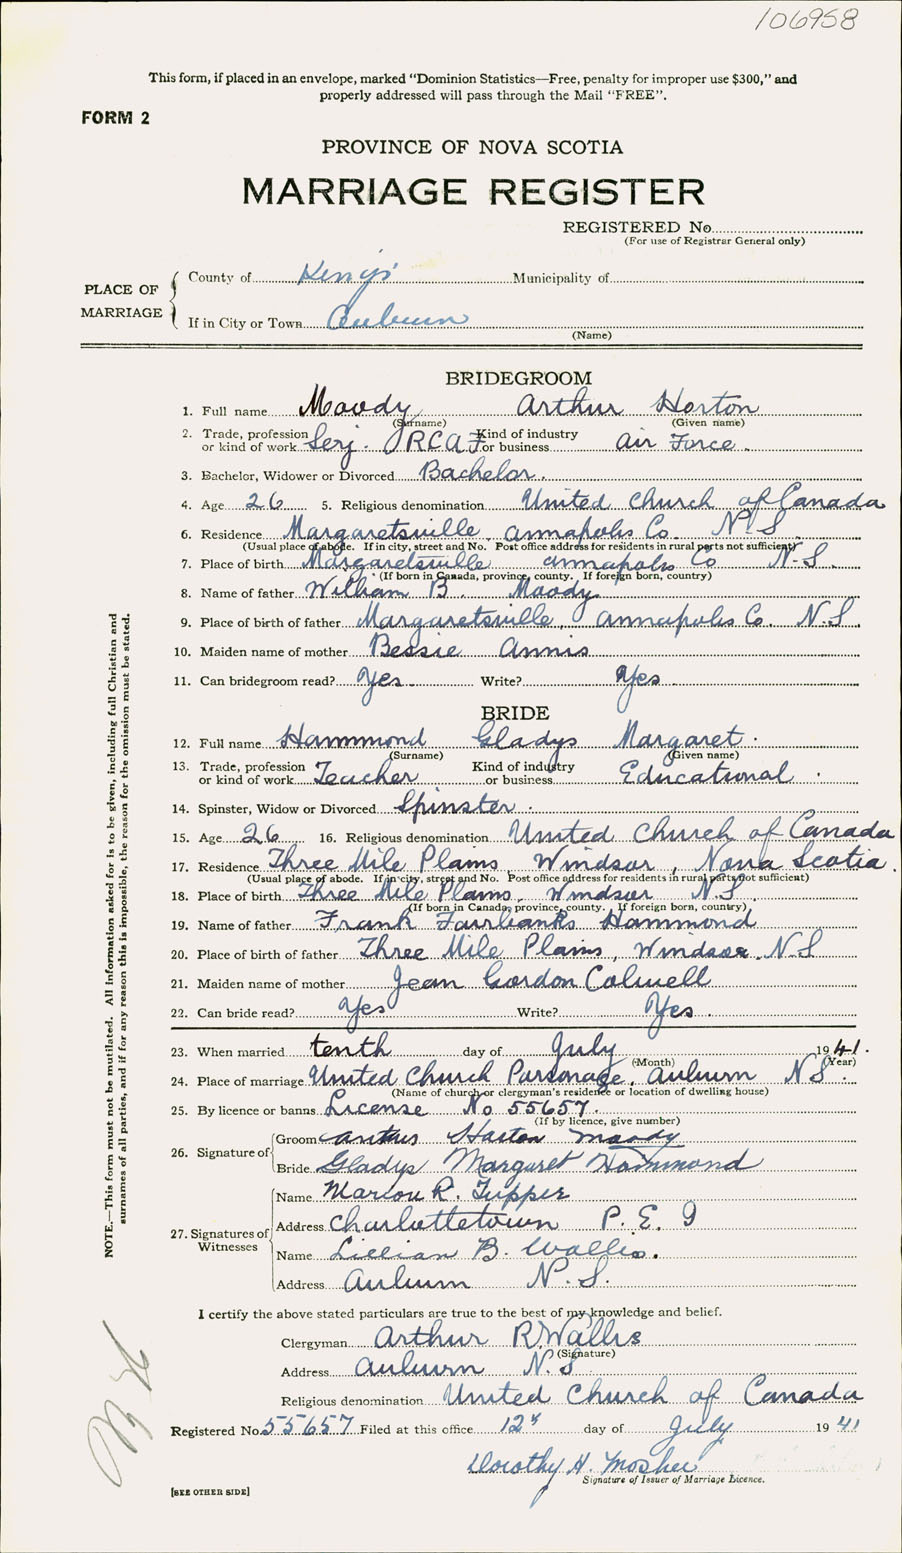 106958
This form, if placed in an envelope, marked "Dominion Statistics—Free, penalty for improper use $300," and
properly addressed will pass through the Mail "FREE".
FORM 2
PROVINCE OF NOVA SCOTIA
MARRIAGE REGISTER
REGISTERED No.
(For use of Registrar General only)
PLACE OF MARRIAGE
County of Kings Municipality of
If in City or Town Auburn
(Name)
BRIDEGROOM
1. Full name Moody Arthur Horton
(Surname) (Given name)
2. Trade, profession or kind of work Serj. RCAF Kind of industry or business Air Force
3. Bachelor, Widower or Divorced Bachelor.
4. Age 26 5. Religious denomination United Church of Canada
6. Residence Margaretsville, Annapolis Co. N.S
(Usual place of abode. If in city, street and No. Post office address for residents in rural parts not sufficient)
7. Place of birth Margaretsville Annapolis Co N.S.
(If born in Canada, province, county. If foreign born, country)
8. Name of father William B. Moody
9. Place of birth of father Margaretsville, Annapolis Co. N.S
10. Maiden name of mother Bessie Annis
11. Can bridegroom read? Yes Write? Yes
BRIDE
12. Full name Hammond Gladys Margaret.
(Surname) (Given name)
13. Trade, profession or kind of work Teacher Kind of industry or business Educational.
14. Spinster, Widow or Divorced Spinster.
15. Age 26 16. Religious denomination United Church of Canada
17. Residence Three Mile Plains, Windsor, Nova Scotia.
(Usual place of abode. If in city, street and No. Post office address for residents in rural parts not sufficient)
18. Place of birth Three Mile Plains, Windsor N.S.
(If born in Canada, province, county. If foreign born, country)
19. Name of father Frank Fairbanks Hammond
20. Place of birth of father Three Mile Plains, Windsor. N.S
21. Maiden name of mother Jean Gordon Colwell
22. Can bride read? Yes Write? Yes.
23. When married tenth day of July 1941.
(Month) (Year)
24. Place of marriage United Church Parsonage, Auburn N.S.
(Name of church or clergyman's residence or location of dwelling house)
25. By licence or banns License No 55657.
(If by licence, give number)
26. Signature of
Groom Arthur Horton Moody
Bride Gladys Margaret Hammond
27. Signatures of Witnesses
Name Marion R. Tupper
Address Charlottetown P. E. I
Name Lillian B. Wallis.
Address Auburn N. S.
I certify the above stated particulars are true to the best of my knowledge and belief.
Clergyman Arthur R. Wallis
(Signature)
Address Auburn N.S
Religious denomination United Church of Canada
Registered No. 55657 Filed at this office 12th day of July 1941
Dorothy H. Mosher
Signature of Issuer of Marriage Licence.
[SEE OTHER SIDE]
NOTE.—This form must not be mutilated. All information asked for is to be given, including full Christian and
surnames of all parties, and if for any reason this is impossible, the reason for the omission must be stated.